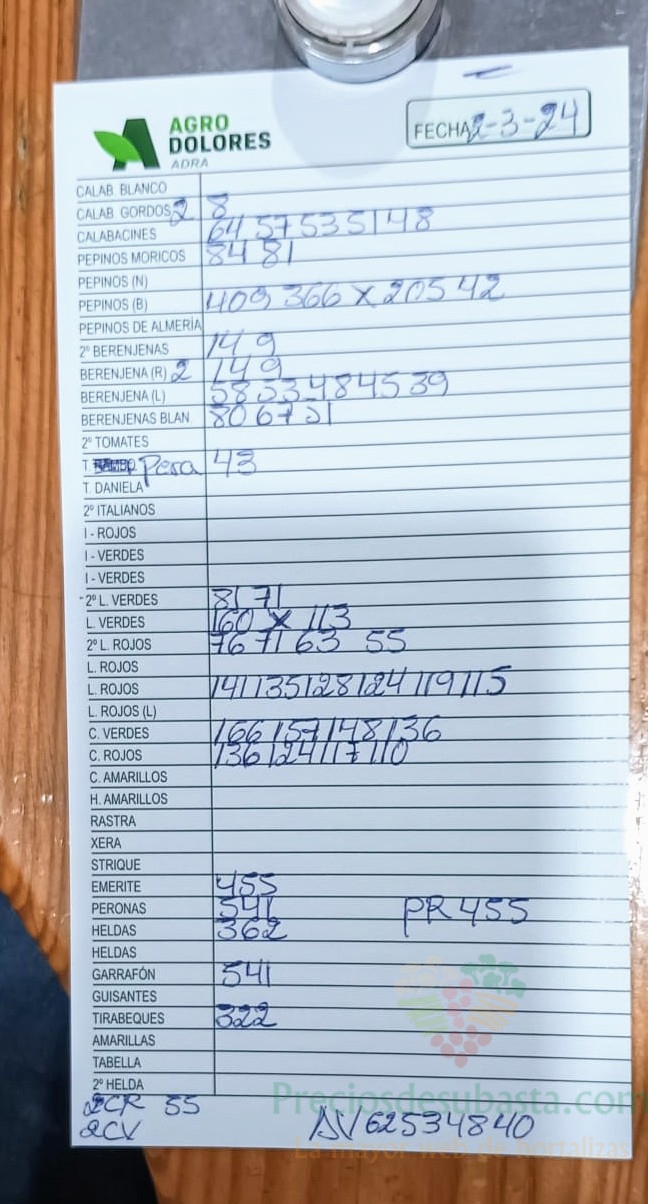 AGRO
DOLORES
ADRA
FECHA 2-3-24
CALAB. BLANCO
CALAB. GORDOS 2 8
CALABACINES 64 57 53 51 48
PEPINOS MORICOS 84 81
PEPINOS (N)
PEPINOS (B) 409 366 X 205 42
PEPINOS DE ALMERÍA
2º BERENJENAS 14 9
BERENJENA (R) 2 14 9
BERENJENA (L) 58 53 48 45 39
BERENJENAS BLAN. 80 67 51
2º TOMATES
T. Pera 43
T. DANIELA
2º ITALIANOS
I - ROJOS
I - VERDES
I - VERDES
2º L. VERDES 81 71
L. VERDES 160 X 113
2º L. ROJOS 76 71 63 55
L. ROJOS
L. ROJOS 141 135 128 124 119 115
L. ROJOS (L)
C. VERDES 166 157 148 136
C. ROJOS 136 124 117 110
C. AMARILLOS
H. AMARILLOS
RASTRA
XERA
STRIQUE
EMERITE 455
PERONAS 541 PR 455
HELDAS 362
HELDAS
GARRAFÓN 541
GUISANTES
TIRABEQUES 322
AMARILLAS
TABELLA
2º HELDA
2CR 55
2CV AV 62 53 48 40
Preciosdesubasta.com
La mayor web de hortalizas